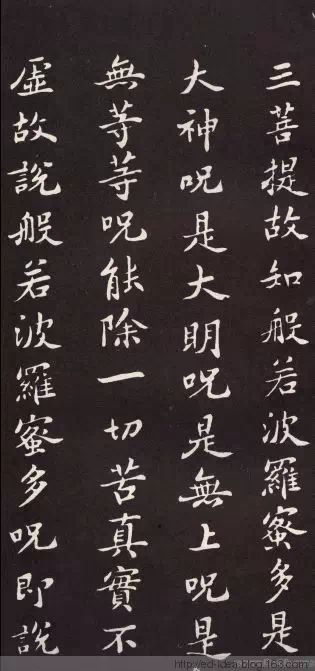 三菩提故知般若波羅蜜多是
大神呪是大明呪是無上呪是
無等等呪能除一切苦真實不
虛故說般若波羅蜜多呪即說
http://ed-idea.blog.163.com